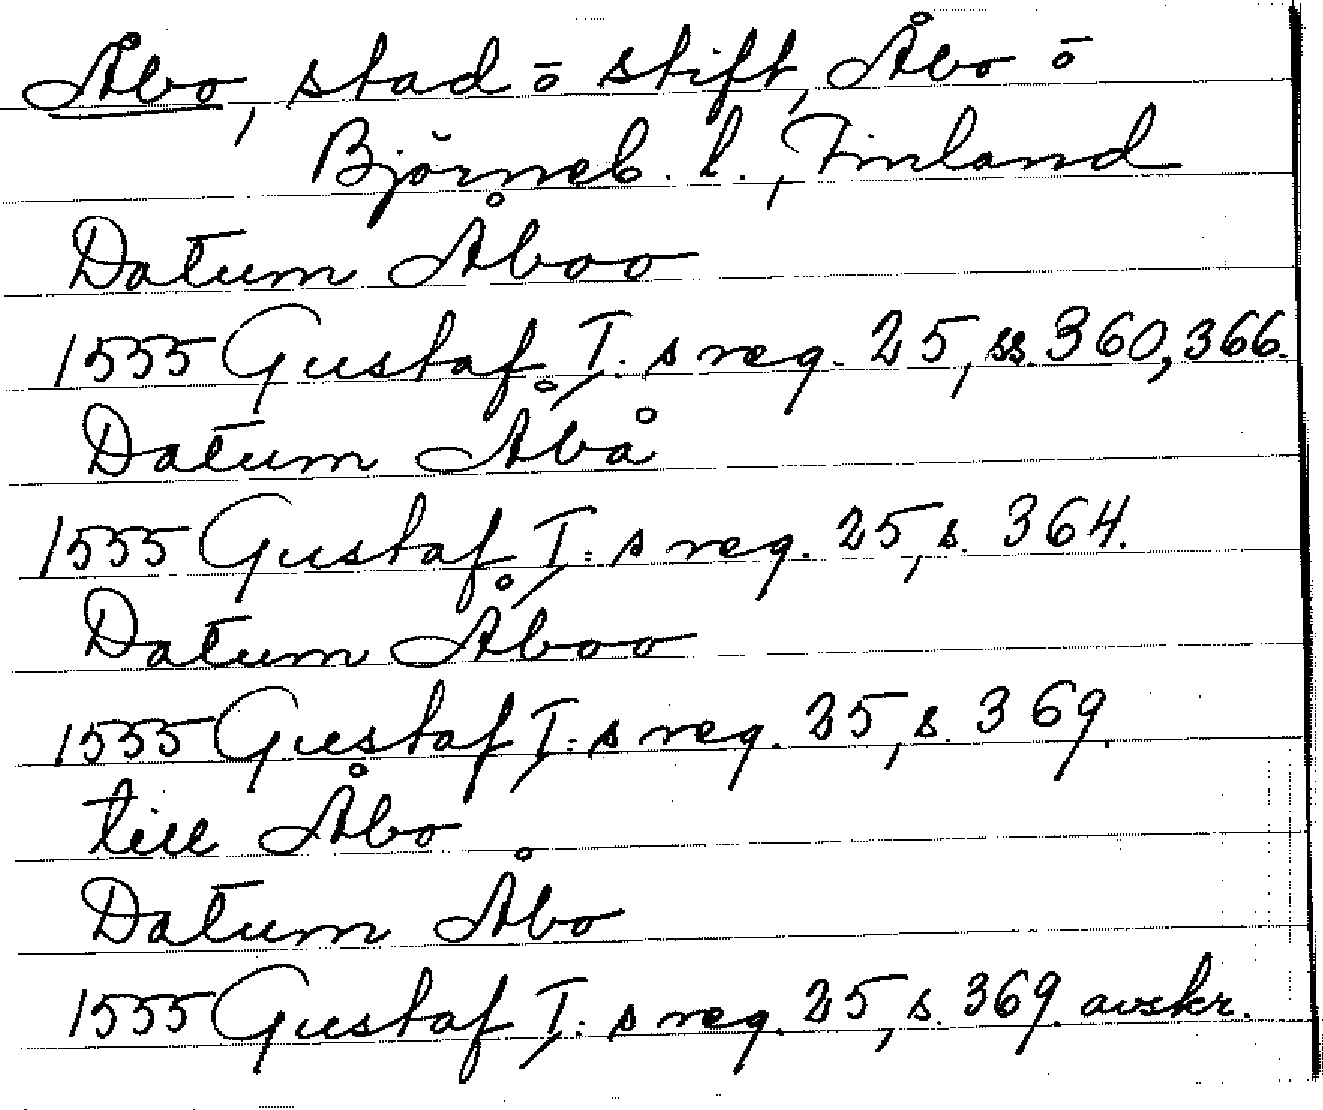 Åbo, stad ō stift, Åbo ō
Björneb. l., Finland
Datum Åboo
1555 Gustaf I:s reg. 25, ss. 360, 366.
Datum Åbå
1555 Gustaf I:s reg. 25, s. 364.
Datum Åboo
1555 Gustaf I:s reg. 25, s. 369.
till Åbo
Datum Åbo
1555 Gustaf I:s reg. 25, s. 369. avskr.